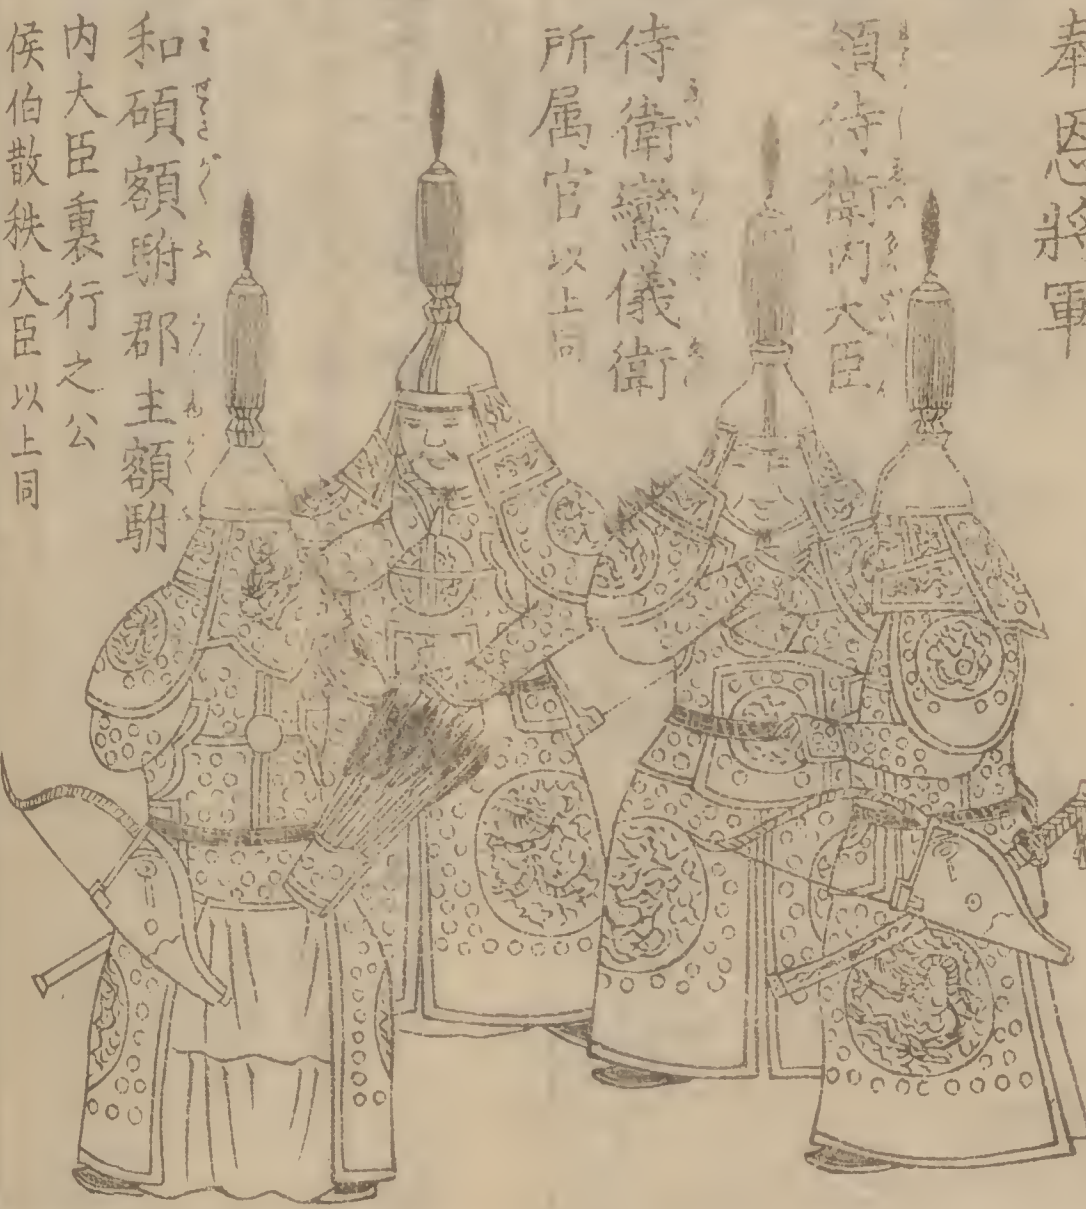 奉恩將軍
領侍衛內大臣
侍衛鸞儀衛
所属官以上同
和碩額駙郡主額駙
内大臣裏行之公
侯伯散秩大臣以上同